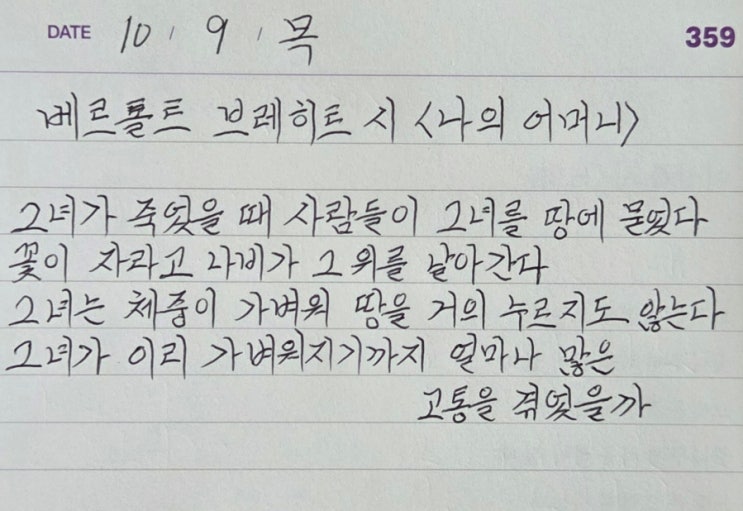 DATE 10 / 9 / 목 359
베르톨트 브레히트 시 <나의 어머니>
그녀가 죽었을 때 사람들이 그녀를 땅에 묻었다
꽃이 자라고 나비가 그 위를 날아간다
그녀는 체중이 가벼워 땅을 거의 누르지도 않는다
그녀가 이리 가벼워지기까지 얼마나 많은
고통을 겪었을까